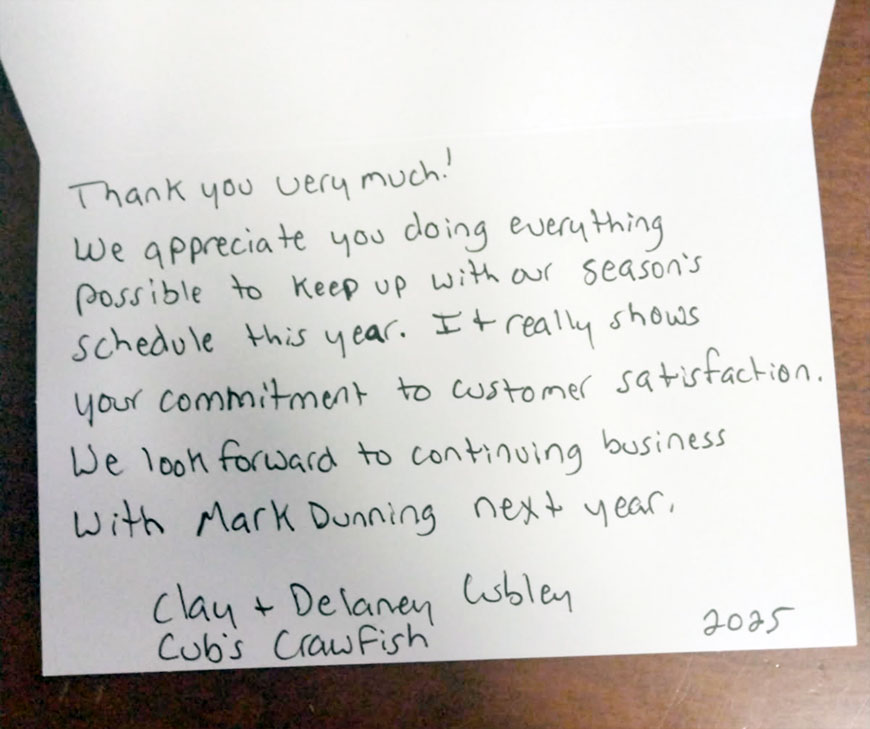 Thank you very much!
We appreciate you doing everything
possible to keep up with our season's
schedule this year. It really shows
your commitment to customer satisfaction.
We look forward to continuing business
with Mark Dunning next year.
Clay + Delaney
Cub's Crawfish
2025